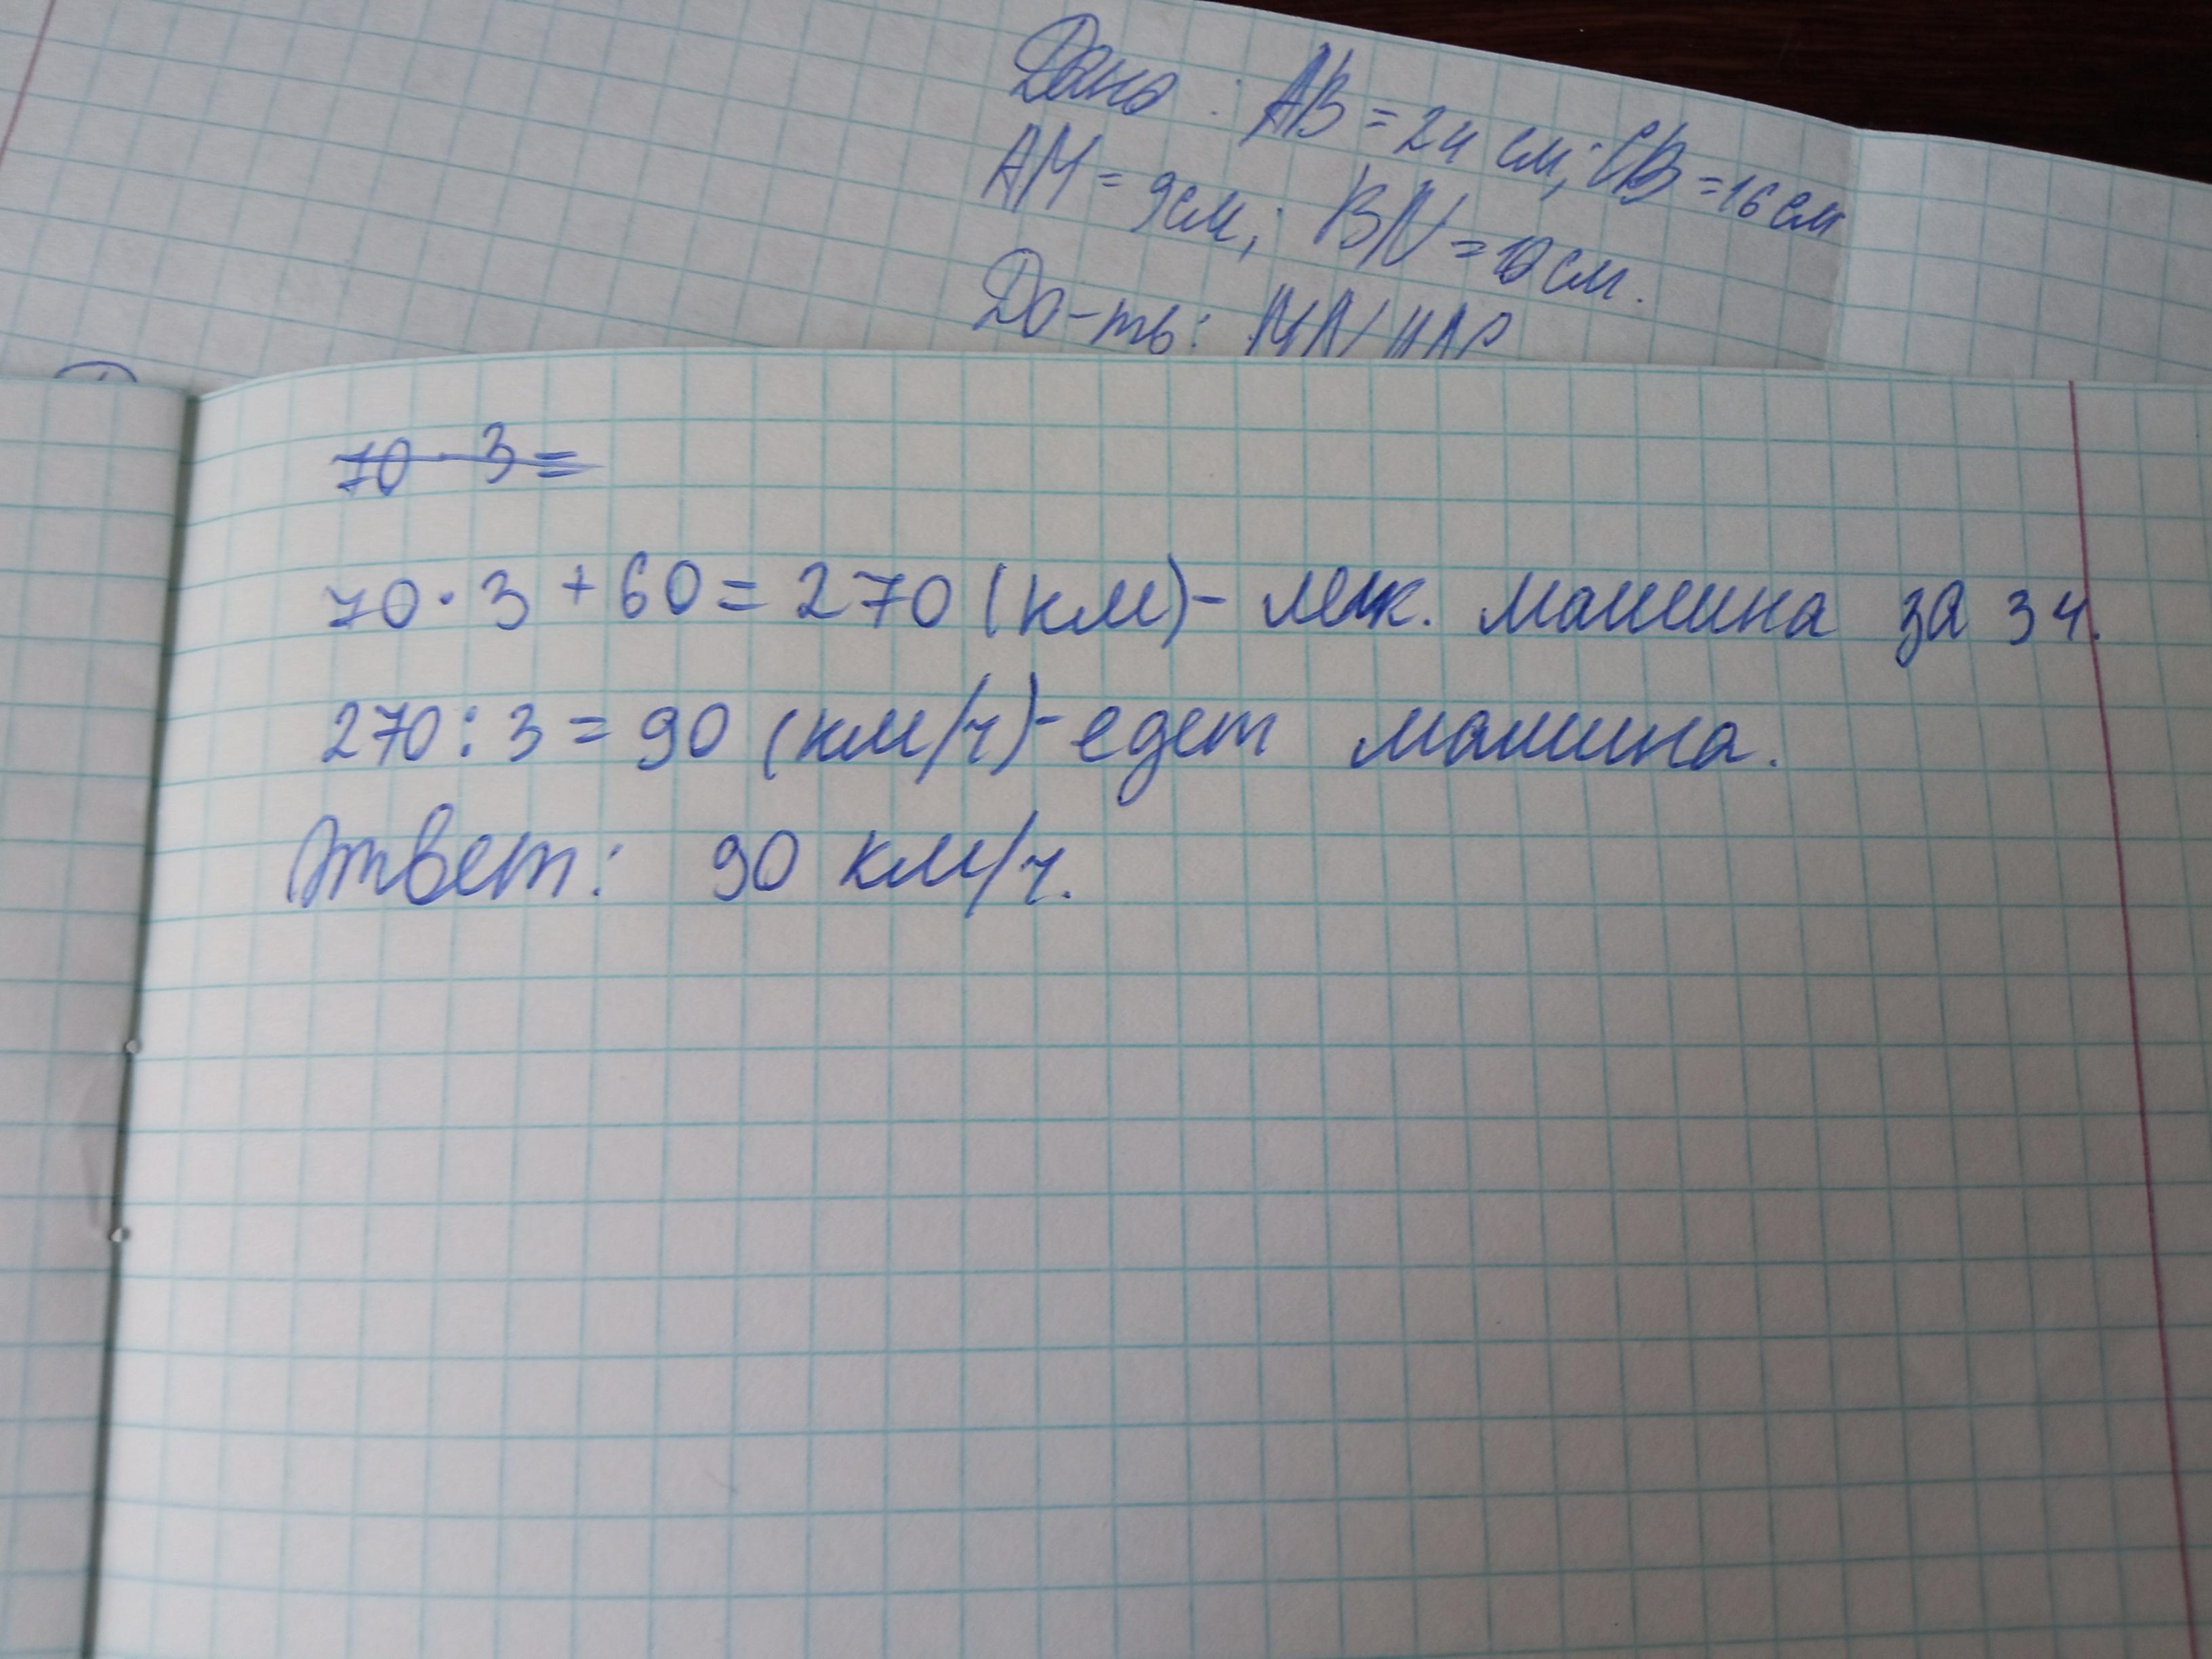 Дано: AB = 24 см; CB = 16 см
AM = 9 см; BN = 10 см.
До-ть: MN || AC
70 · 3 =
70 · 3 + 60 = 270 (км) - машина за 3 ч.
270 : 3 = 90 (км/ч) - едет машина.
Ответ: 90 км/ч.